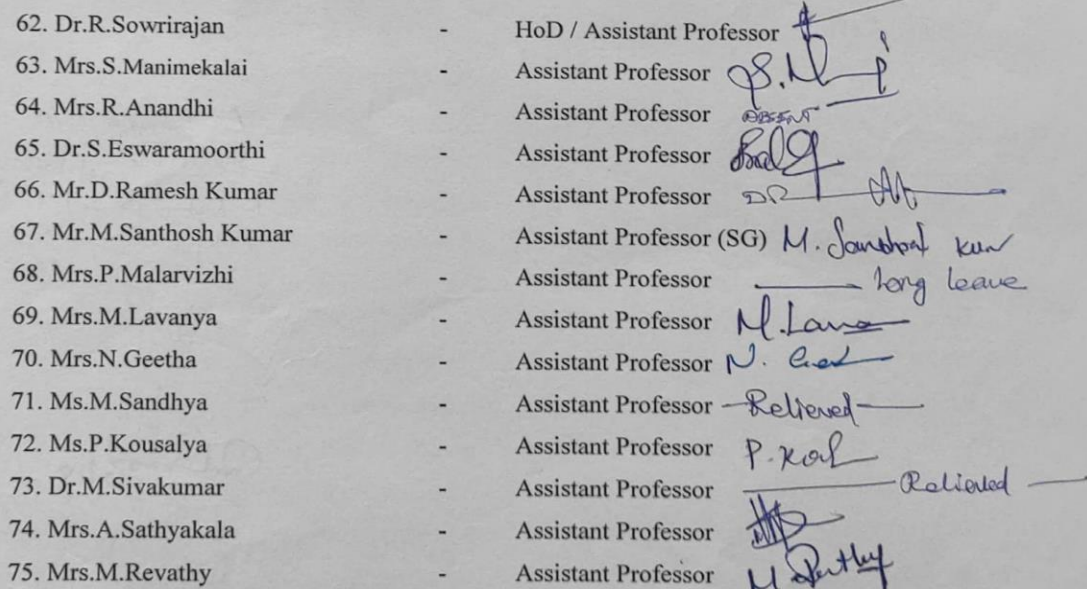 62. Dr.R.Sowrirajan - HoD / Assistant Professor
63. Mrs.S.Manimekalai - Assistant Professor
64. Mrs.R.Anandhi - Assistant Professor ABSENT
65. Dr.S.Eswaramoorthi - Assistant Professor
66. Mr.D.Ramesh Kumar - Assistant Professor
67. Mr.M.Santhosh Kumar - Assistant Professor (SG) M.
68. Mrs.P.Malarvizhi - Assistant Professor Long leave
69. Mrs.M.Lavanya - Assistant Professor M.Lava
70. Mrs.N.Geetha - Assistant Professor N.
71. Ms.M.Sandhya - Assistant Professor Relieved
72. Ms.P.Kousalya - Assistant Professor P.
73. Dr.M.Sivakumar - Assistant Professor Relieved
74. Mrs.A.Sathyakala - Assistant Professor
75. Mrs.M.Revathy - Assistant Professor M.